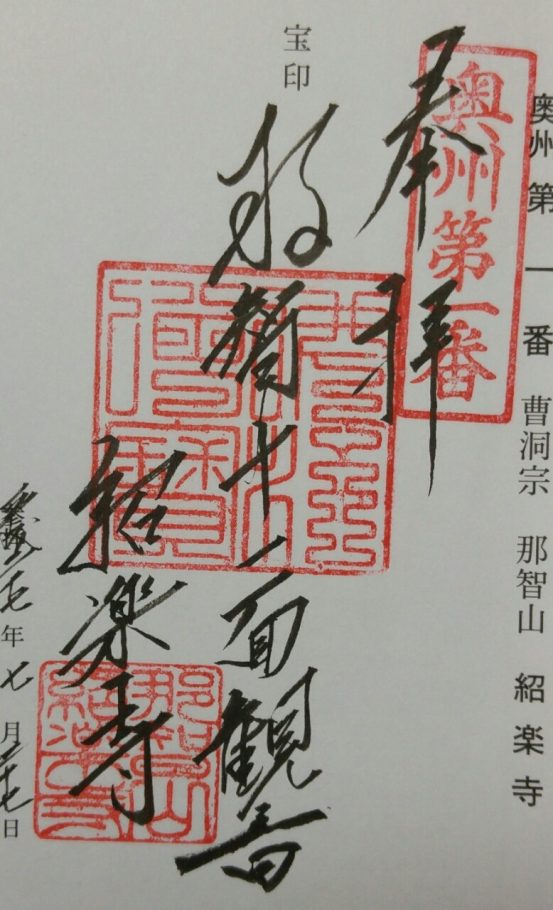 奥州第一番 曹洞宗 那智山 紹楽寺
奥州第一番
奉拝
宝印
那智十一面観音
紹楽寺
平成二七年七月二七日